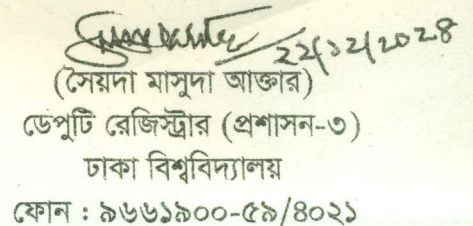 ২২/১২/২০২৪
(সৈয়দা মাসুদা আক্তার)
ডেপুটি রেজিস্ট্রার (প্রশাসন-৩)
ঢাকা বিশ্ববিদ্যালয়
ফোন : ৯৬৬১৯০০-৫৯/৪০২১